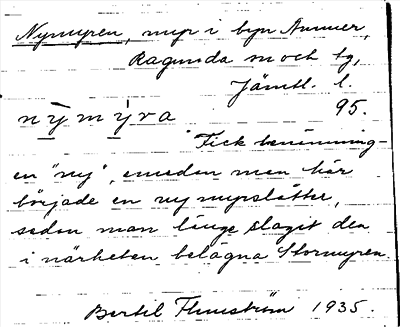 Nymyren, myr i byn Ammer,
Ragunda sn och tg,
Jämtl. l.
95.
nỳmỳra
Fick benämning-
en "ny", emedan man här
började en ny myrslåtter,
sedan man länge slagit den
i närheten belägna Stormyren.
Bertil Flemström 1935.